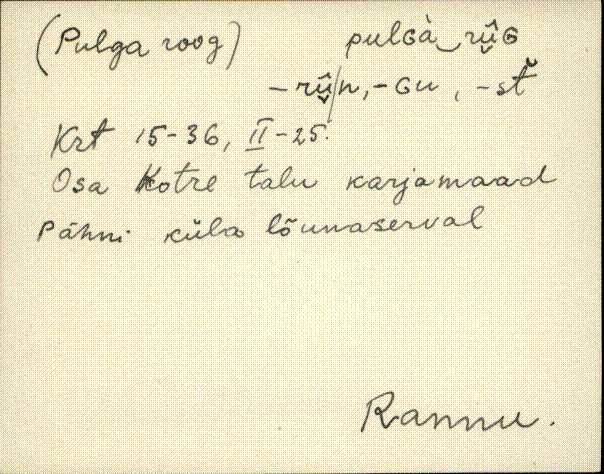 (Pulga roog) pulGà‿rṷ̂G
-rṷ̂/n, -Gu, -st̆
Krt 15-36, II-25.
Osa Kotre talu karjamaad
Pähni küla lõunaserval
Rannu.